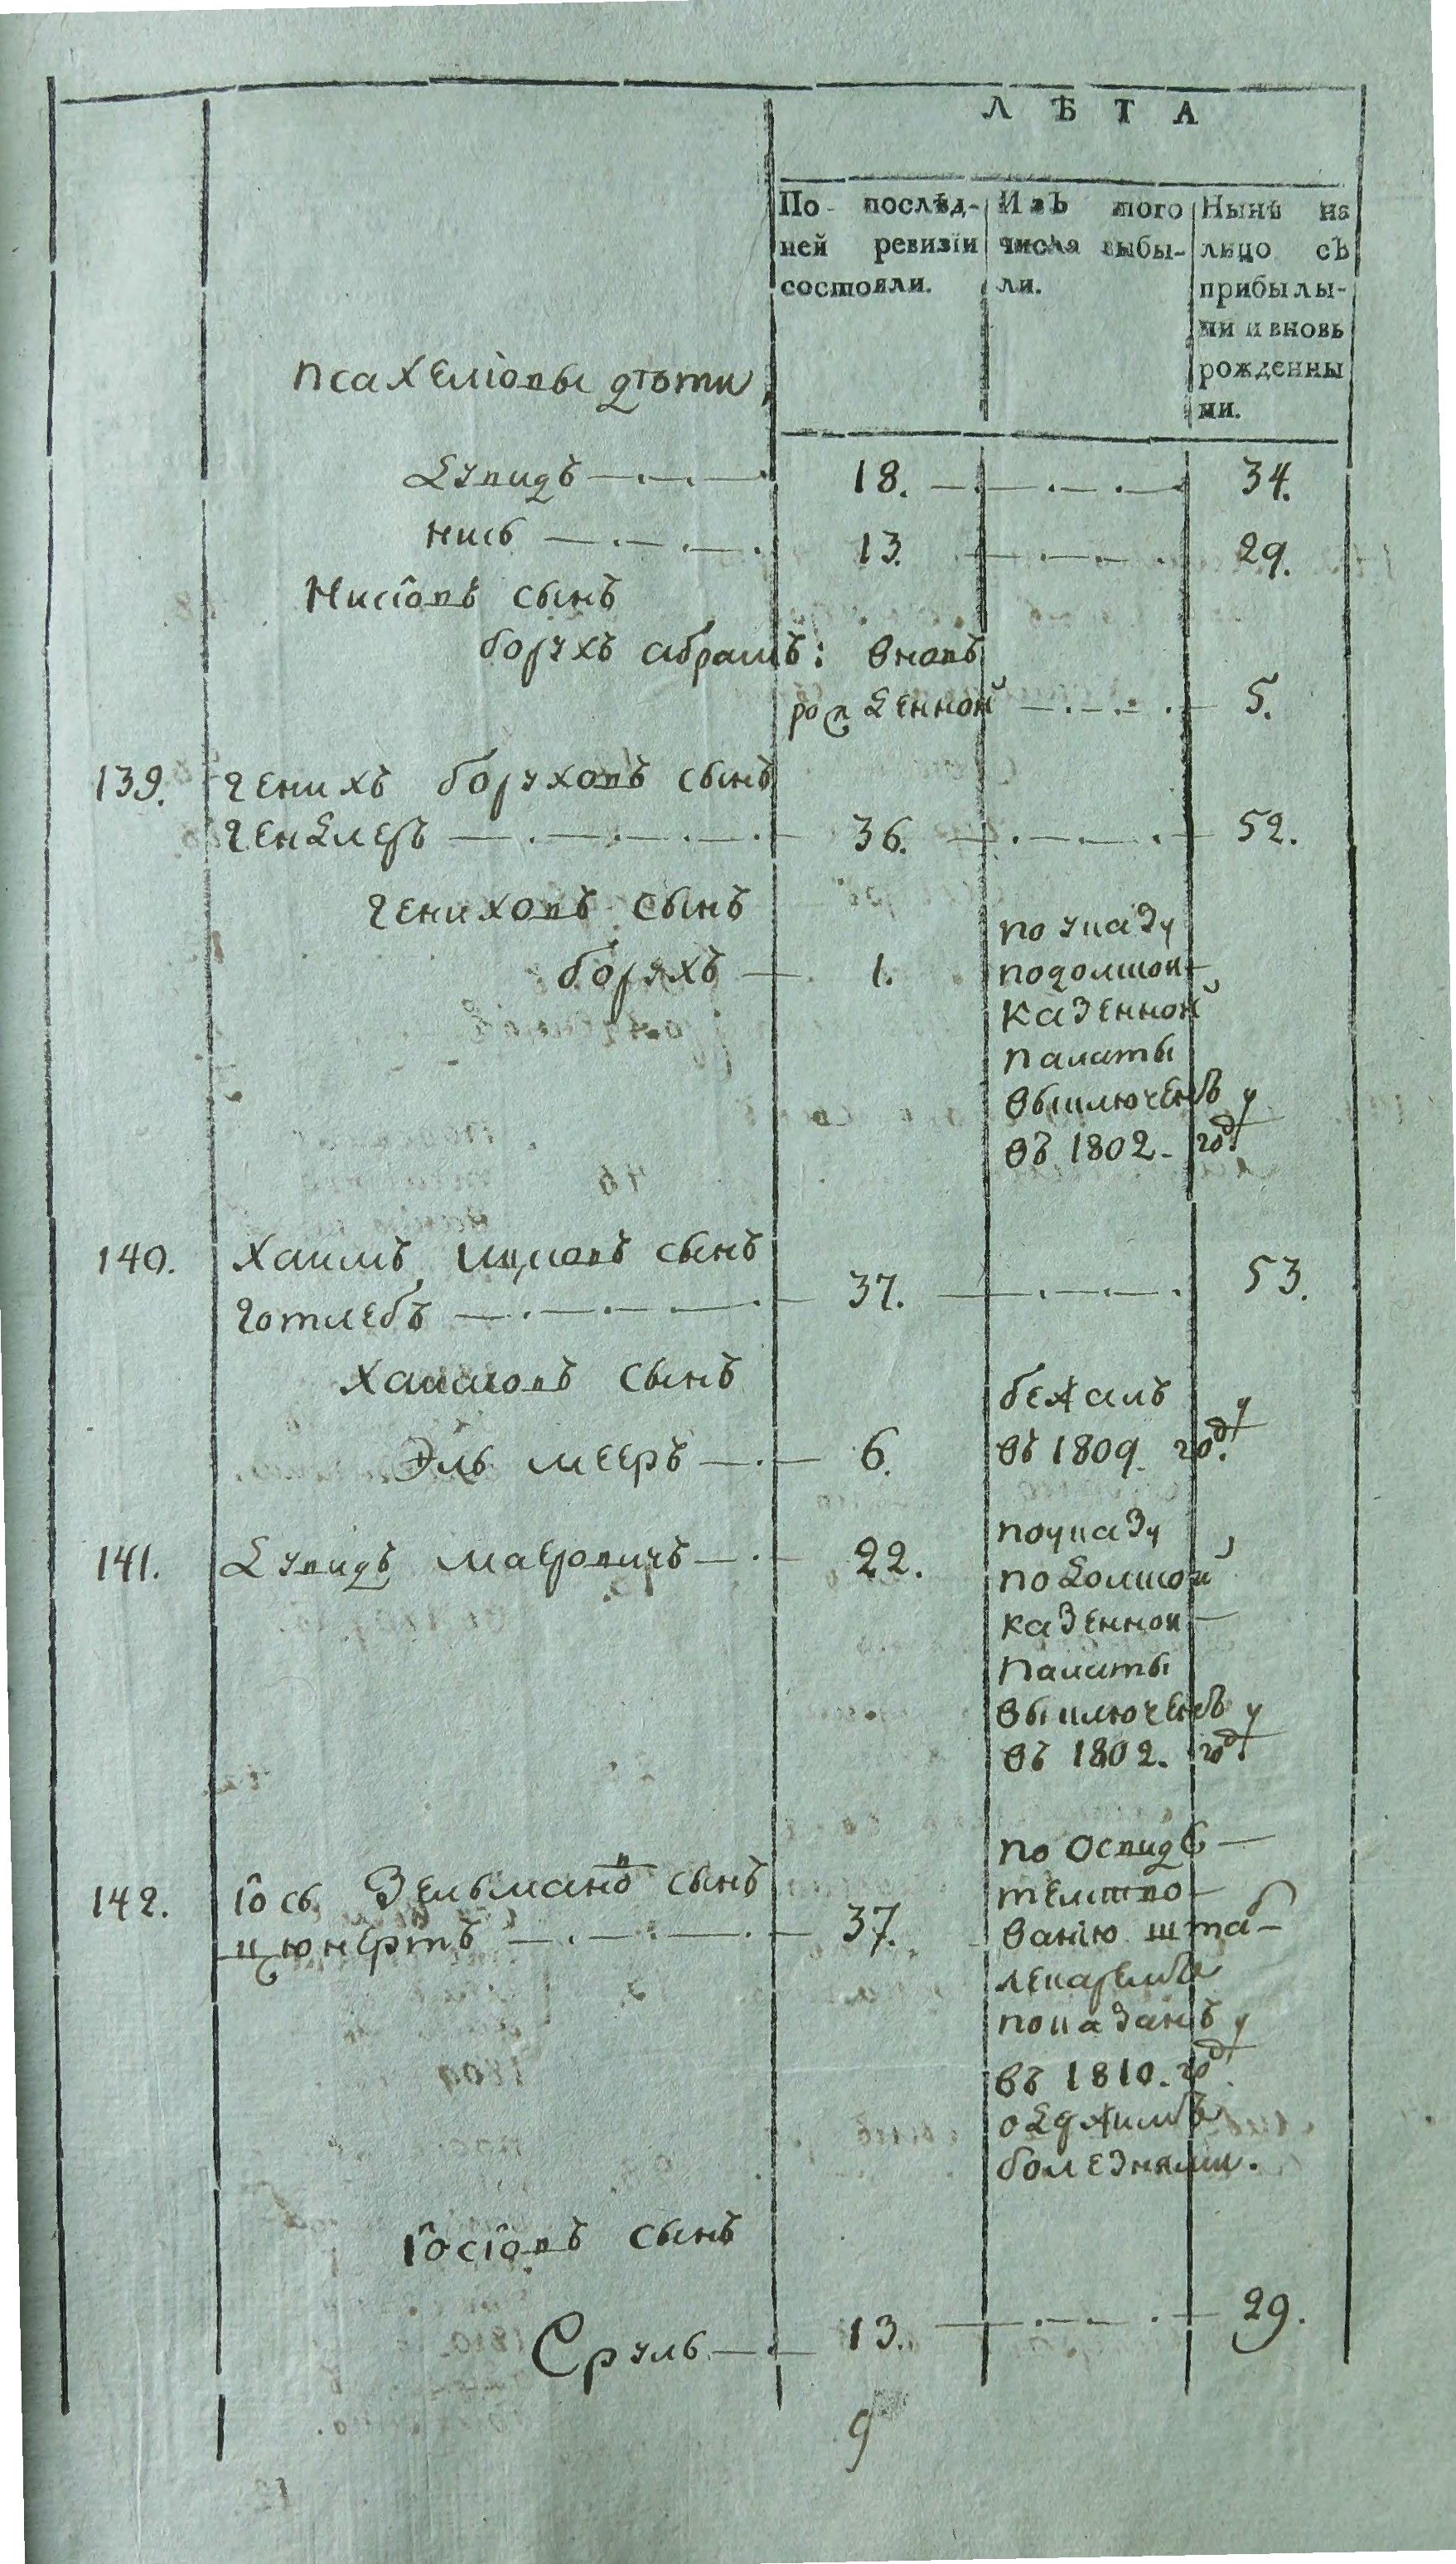 ЛѢТА
По послѣд-
ней ревизіи
состояли.
Изъ того
числа выбы-
ли.
Нынѣ на
лицо съ
прибылы-
ми и вновь
рожденны
ми.
Псахеліовы дѣти
Дувидъ 18. 34.
Нись 13. 29.
Нисіовъ сынъ
Борухъ абрамъ: вновь
рожденной 5.
139. Генихъ Боруховъ сынъ
Гендлеръ 36. 52.
Гениховъ сынъ
Борухъ 1.
по указу
подолшой
казенной
палаты
выключенъ
въ 1802. году
140. Хаимъ Ицковъ сынъ
Готлебъ 37. 53.
Хаимовъ сынъ
Эль мееръ 6.
бежалъ
въ 1809 году
141. Дувидъ Маеровичъ 22.
поуказу
подолшой
казенной
палаты
выключенъ
въ 1802. году
142. Іось Зельмановъ сынъ
37.
по освидѣ
телство
ванію штаб
лекаремъ
показанъ
въ 1810. году
одержимъ
болезнями.
Іосіовъ сынъ
Сруль 13. 29.
9